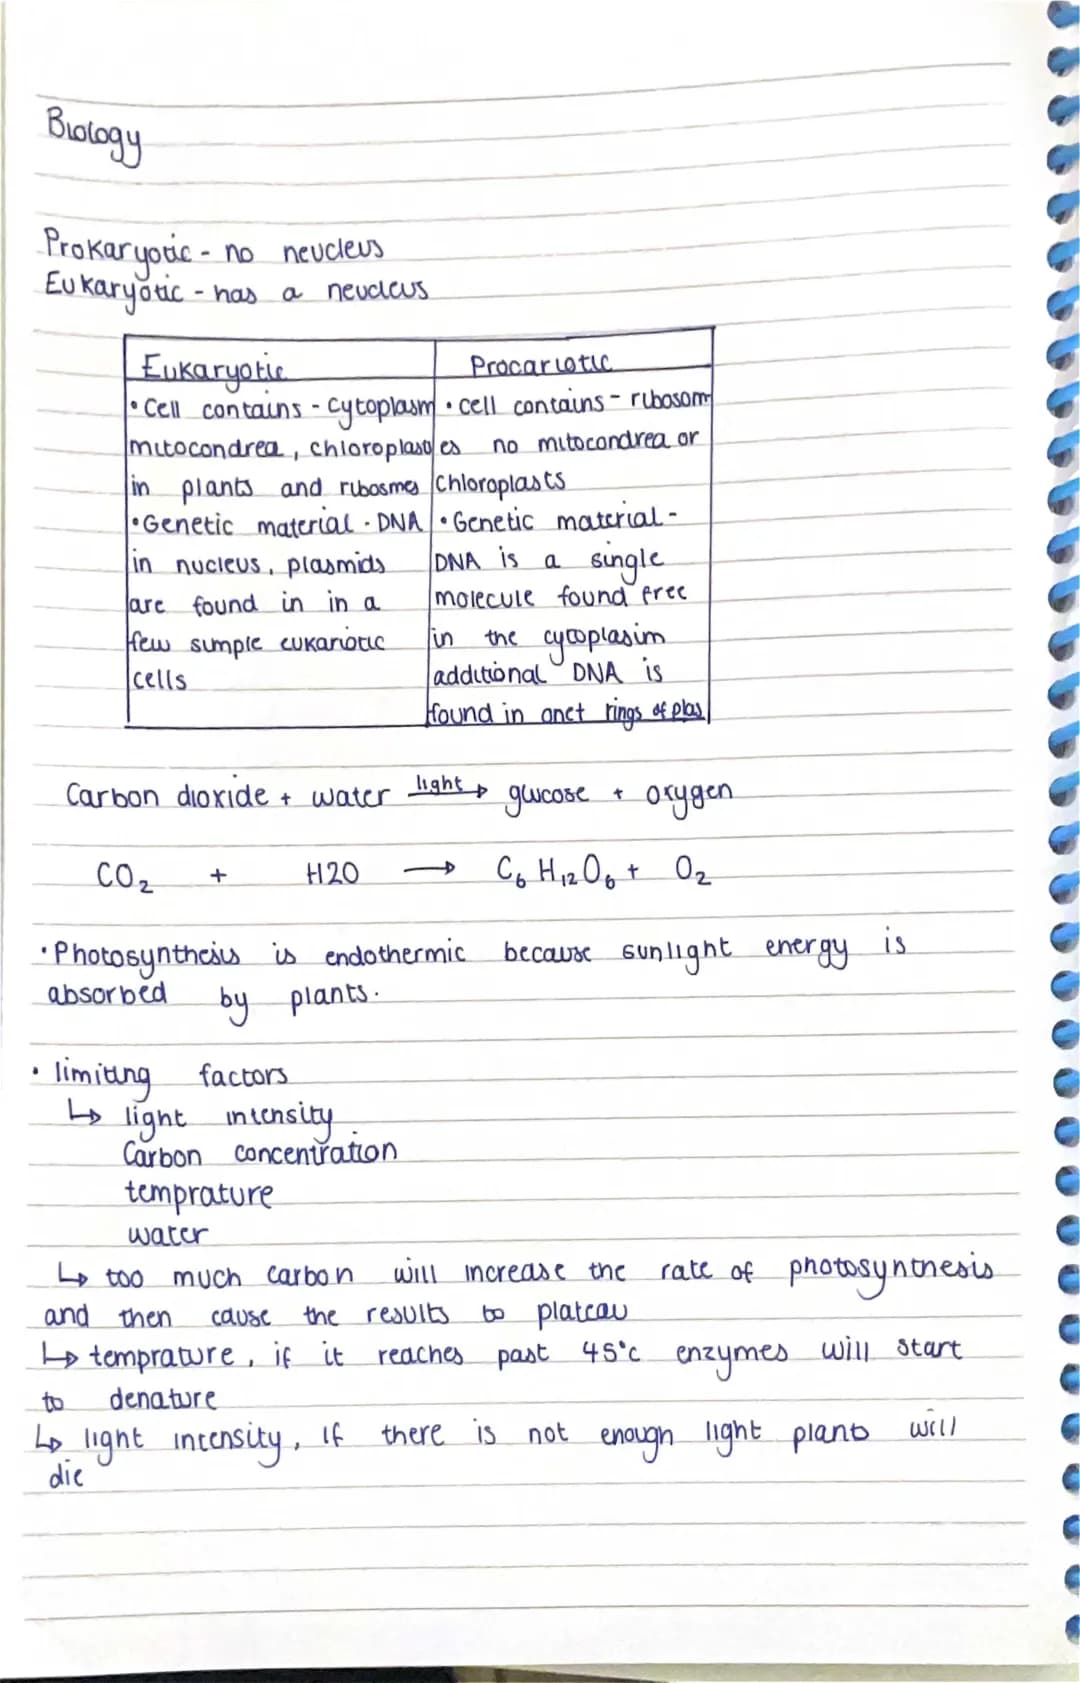 Biology
Prokaryotic - no neucleus
Eukaryotic - has a neucleus
Eukaryotic
• Cell contains - Cytoplasm
mitocondrea, chloroplast
in plants and ribosmes
• Genetic material - DNA
in nucleus, plasmids
are found in in a
few simple eukariotic
cells
Procariotic
• cell contains - ribosom
es no mitocondrea or
Chloroplasts
• Genetic material -
DNA is a single
molecule found free
in the cytoplasim
additional DNA is
found in rings of plas
Carbon dioxide + water light → glucose + oxygen
CO₂ + H2O → C₆H₁₂O₆ + O₂
• Photosynthesis is endothermic because sunlight energy is
absorbed by plants.
• limiting factors
↳ light intensity
Carbon concentration
temprature
water
↳ too much carbon will increase the rate of photosynthesis
and then cause the results to plateau
↳ temprature, if it reaches past 45°c enzymes will start
to denature
↳ light intensity, if there is not enough light plants will
die